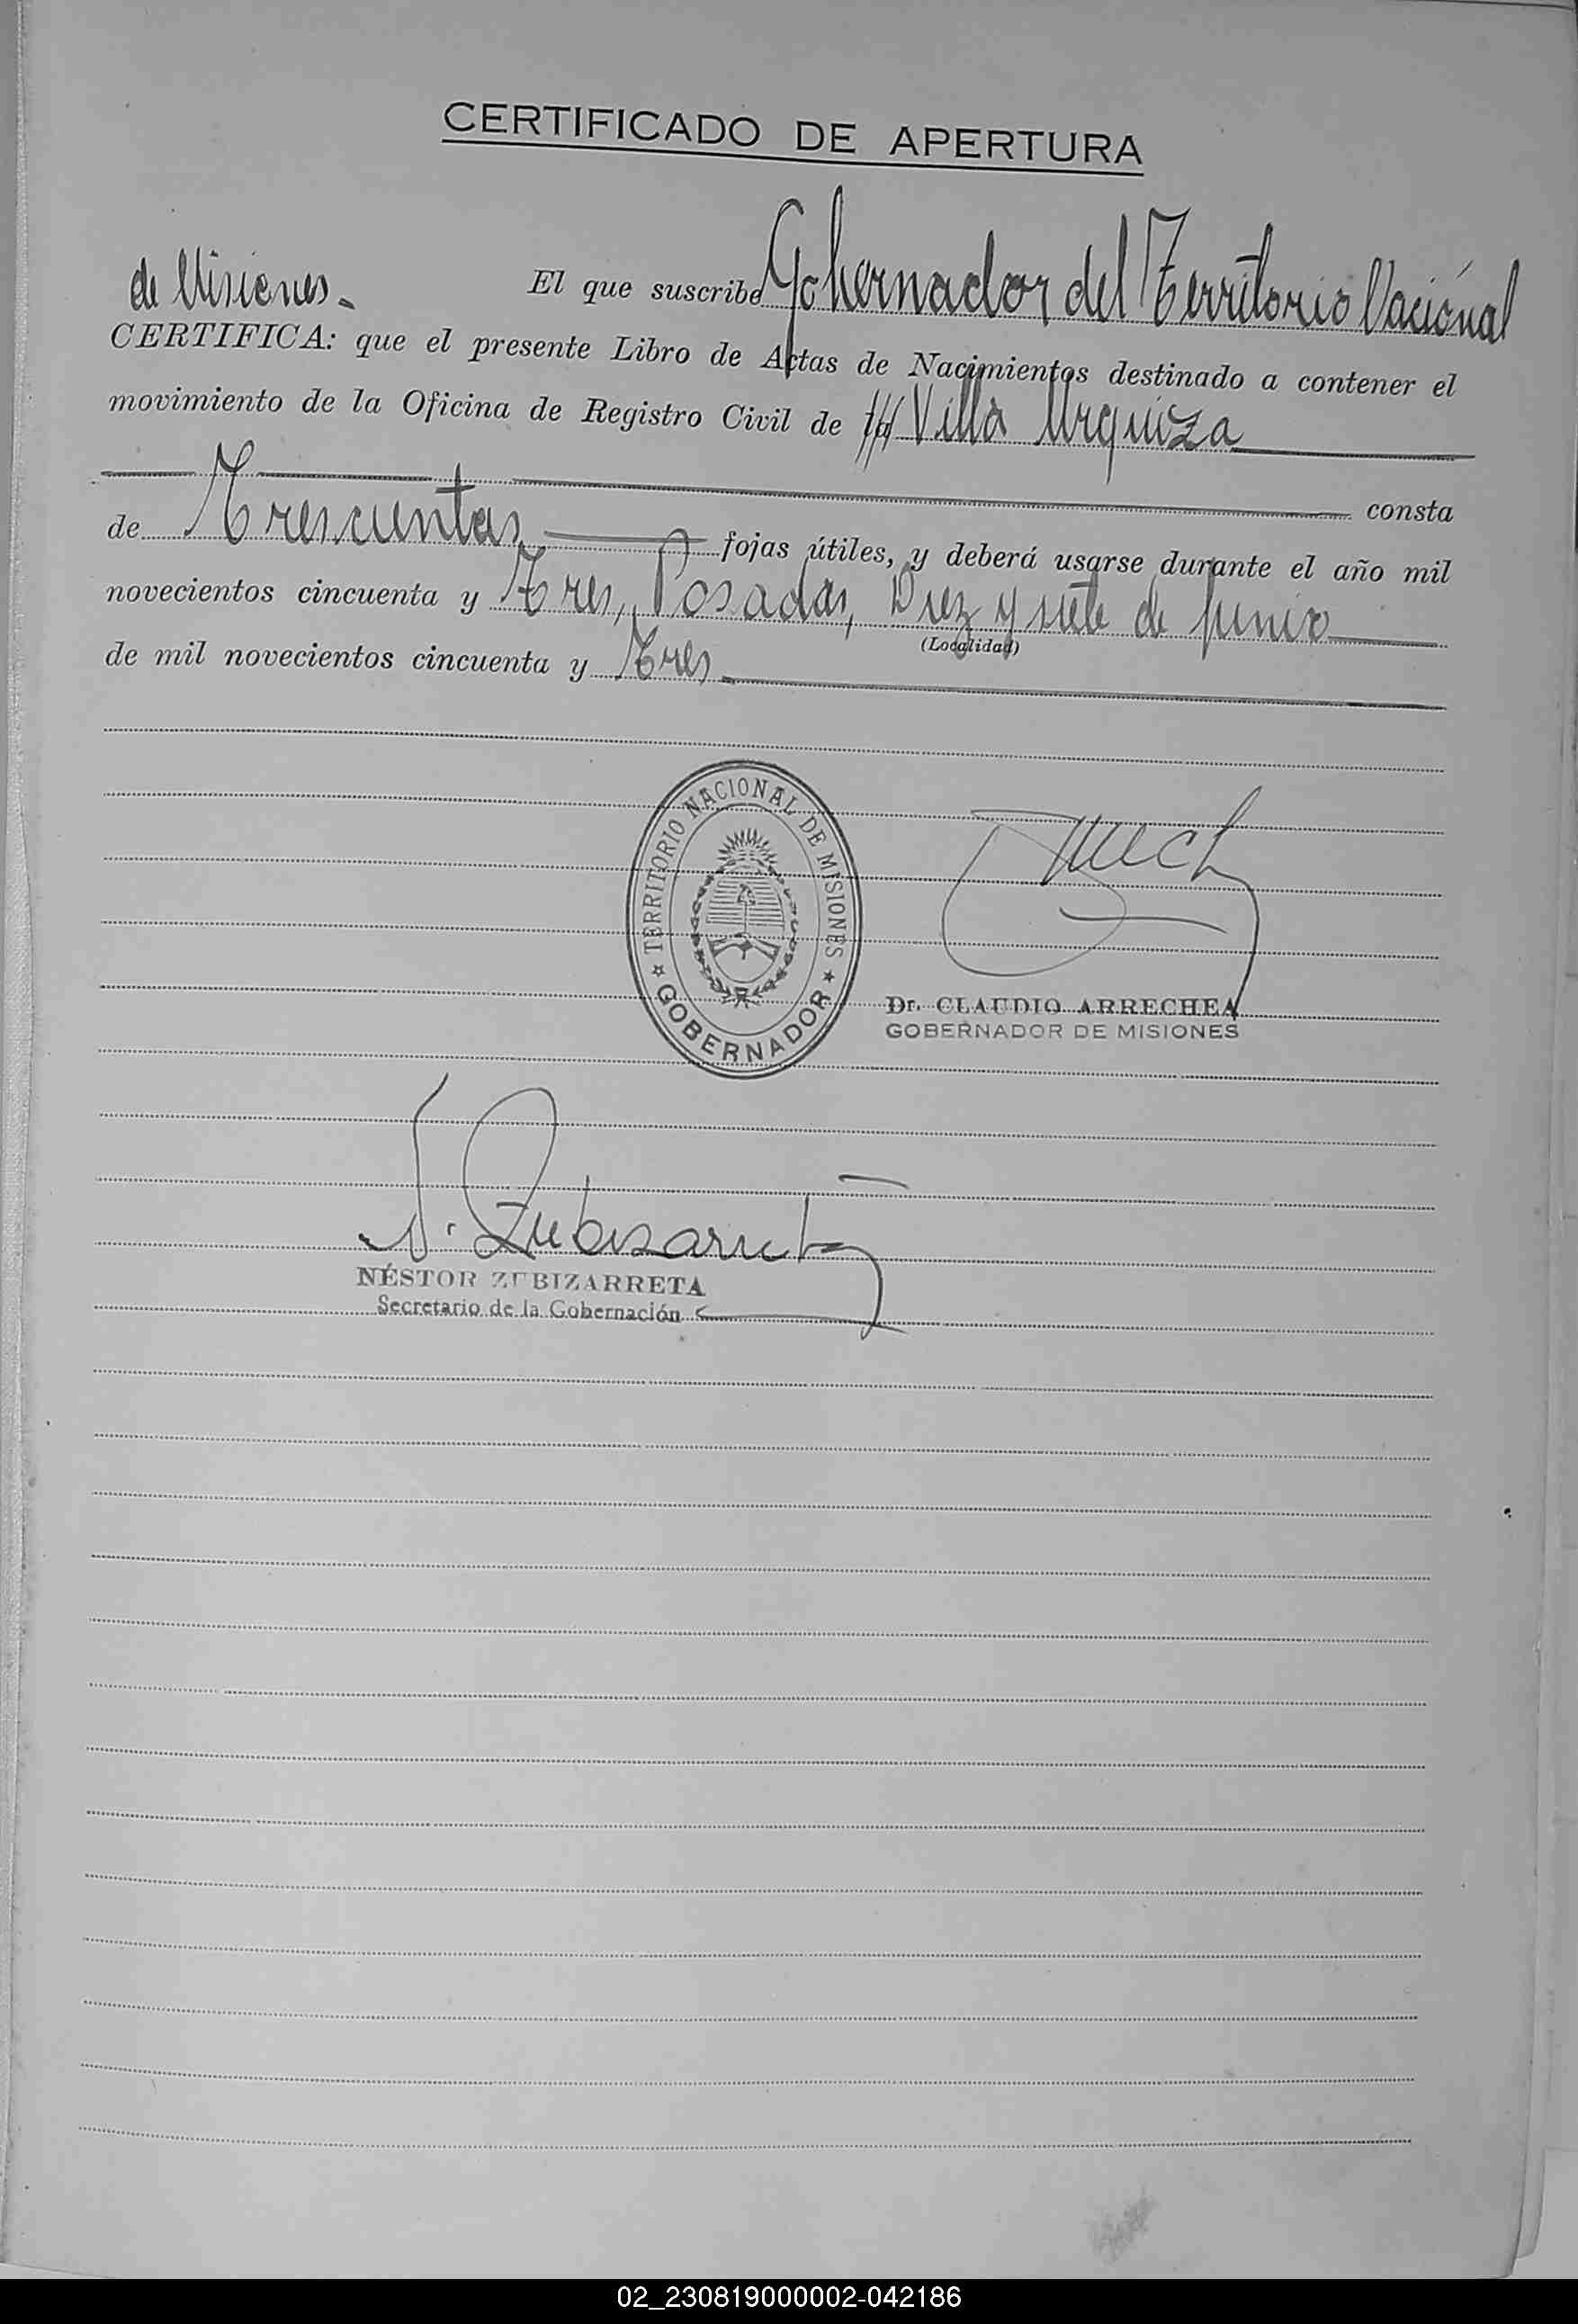 CERTIFICADO DE APERTURA
El que suscribe Gobernador del Territorio Nacional
de Misiones.
CERTIFICA: que el presente Libro de Actas de Nacimientos destinado a contener el
movimiento de la Oficina de Registro Civil de Villa Urquiza
consta
de Trescientas fojas útiles, y deberá usarse durante el año mil
novecientos cincuenta y Tres, Posadas, Diez y siete de junio
(Localidad)
de mil novecientos cincuenta y Tres
TERRITORIO NACIONAL DE MISIONES
GOBERNADOR
Dr. CLAUDIO ARRECHEA
GOBERNADOR DE MISIONES
N. Zubizarreta
NÉSTOR ZUBIZARRETA
Secretario de la Gobernación
02_230819000002-042186